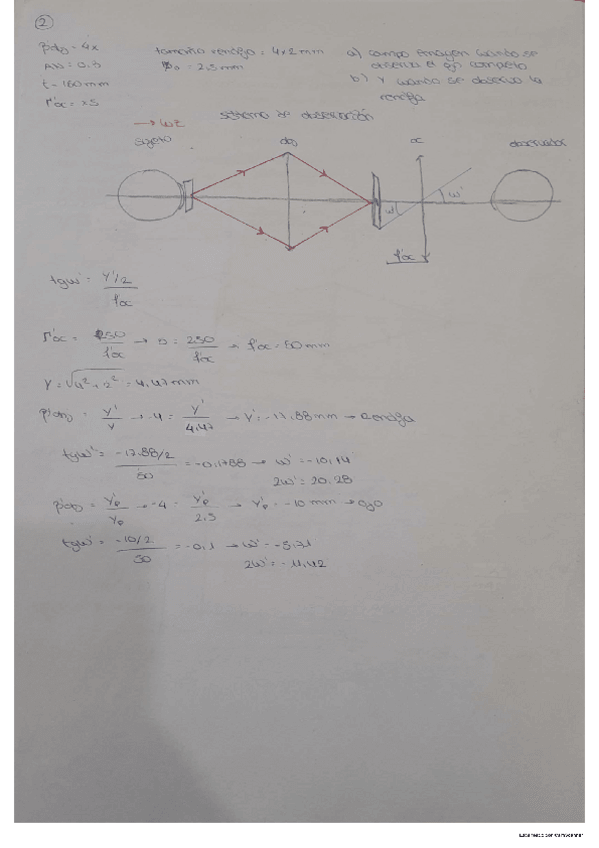 ②
β'ob = 4x
AN = 0.3
t = 160 mm
Γ'oc = x5
tamaño rendija = 4x2 mm
φo = 2.5 mm
a) campo imagen cuando se observa el ojo completo
b) Y cuando se observa la rendija
sistema de observación
→ wz
sujeto
ob
oc
observador
w
w'
f'oc
tgw' = Y'/2 / f'oc
Γ'oc = 250 / f'oc → 5 = 250 / f'oc → f'oc = 50 mm
Y = √4² + 2² = 4,47 mm
β'ob = Y' / Y → -4 = Y' / 4,47 → Y' = -17,88 mm → Rendija
tgw' = -17,88/2 / 50 = -0,1788 → w' = -10,14
2w' = 20,28
β'ob = Y'o / Yo → -4 = Y'o / 2,5 → Y'o = -10 mm → ojo
tgw' = -10/2 / 50 = -0,1 → w' = -5,71
2w' = -11,42